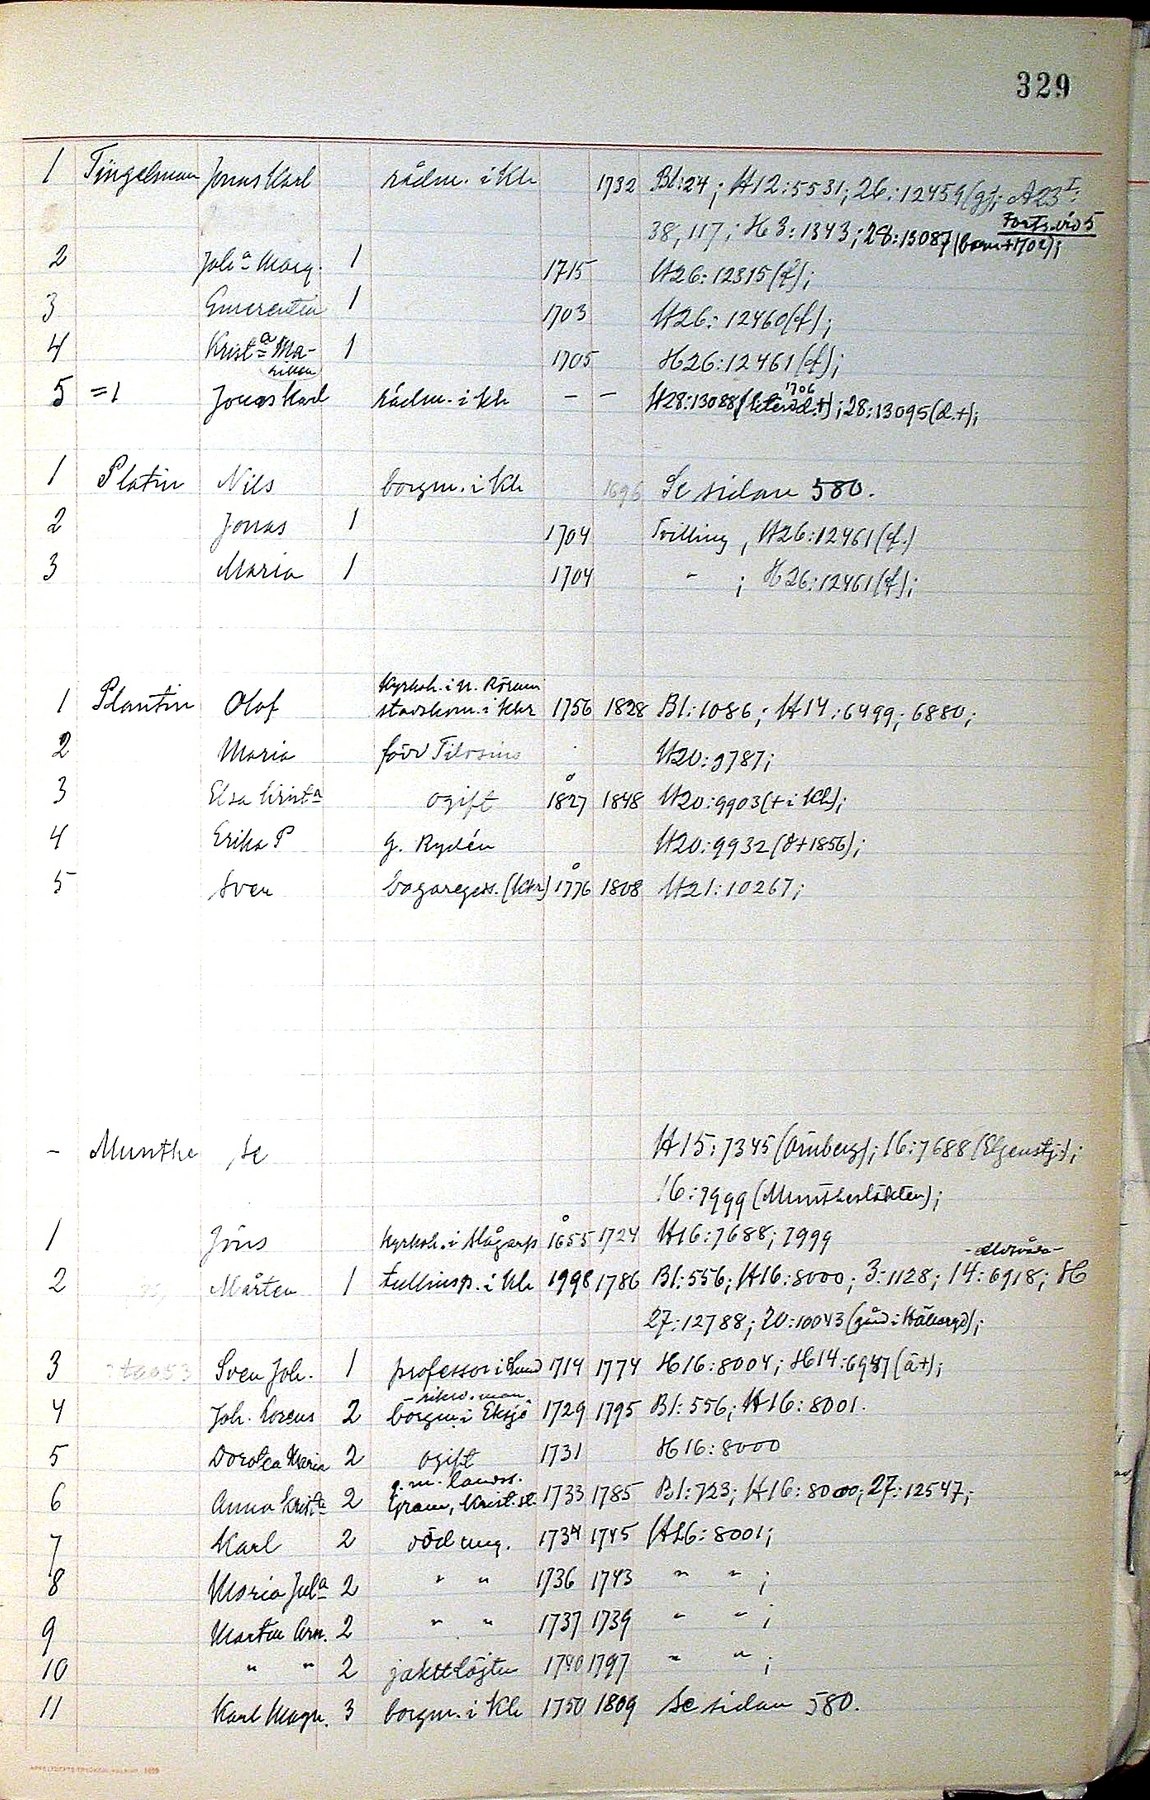 329
1 Tingelman Jonas Karl rådm. i Kh 1732 Bl:24; H12:5531; 26:12459(g); A23I:
38, 117; H3:1343; 28:13087 (barn+1702); Forts. vid 5
2 Joha Marg. 1 1715 H26:12315(f);
3 Emerentia 1 1703 H26:12460(f);
4 Krista Ma- 1 1705 H26:12461(f);
5 =1 Jonas Karl rådm. i Kh - - H28:13088 1706; 28:13095(d.+);
1 Platin Nils borgm. i Kh 1696 Se sidan 580.
2 Jonas 1 1704 Tvilling, H26:12461(f.)
3 Maria 1 1704 " ; H26:12461(f);
kyrkoh. i N. Rörum
1 Plantin Olof stadskom. i Khr 1756 1828 Bl:1086; H14:6499; 6880;
2 Maria född Tilosius H20:9787;
3 Elsa Krista ogift 1827 1848 H20:9903(+ i Kh);
4 Erika P g. Rydén H20:9932(d+1856);
5 Sven bagaregess. (Khr) 1776 1808 H21:10267;
- Munthe se H15:7345(Örnberg); 16:7688(Elgenstj.);
16:7999(Munthesläkten);
1 Jöns kyrkoh. i Hågarp 1655 1724 H16:7688; 7999
2 Mårten 1 tullinsp. i Kh 1998 1786 Bl:556; H16:8000; 3:1128; 14:6918; H
27:12788; 20:10043
3 Sven Joh. 1 professor i Lund 1714 1774 H16:8004; H14:6947(a+);
4 Joh. Lorens 2 borgm. i Eksjö 1729 1795 Bl:556; H16:8001.
5 Dorotea Maria 2 ogift 1731 H16:8000
g. m. landss.
6 Anna Krista 2 Gram, Krist.st. 1733 1785 Bl:723; H16:8000; 27:12547;
7 Karl 2 död ung. 1734 1745 H16:8001;
8 Maria Jula 2 " " 1736 1743 " " ;
9 Martin Arn. 2 " " 1737 1739 " " ;
10 " " 2 jaktlöjtn 1740 1797 " " ;
11 Karl Magn. 3 borgm. i Kh 1750 1809 se sidan 580.